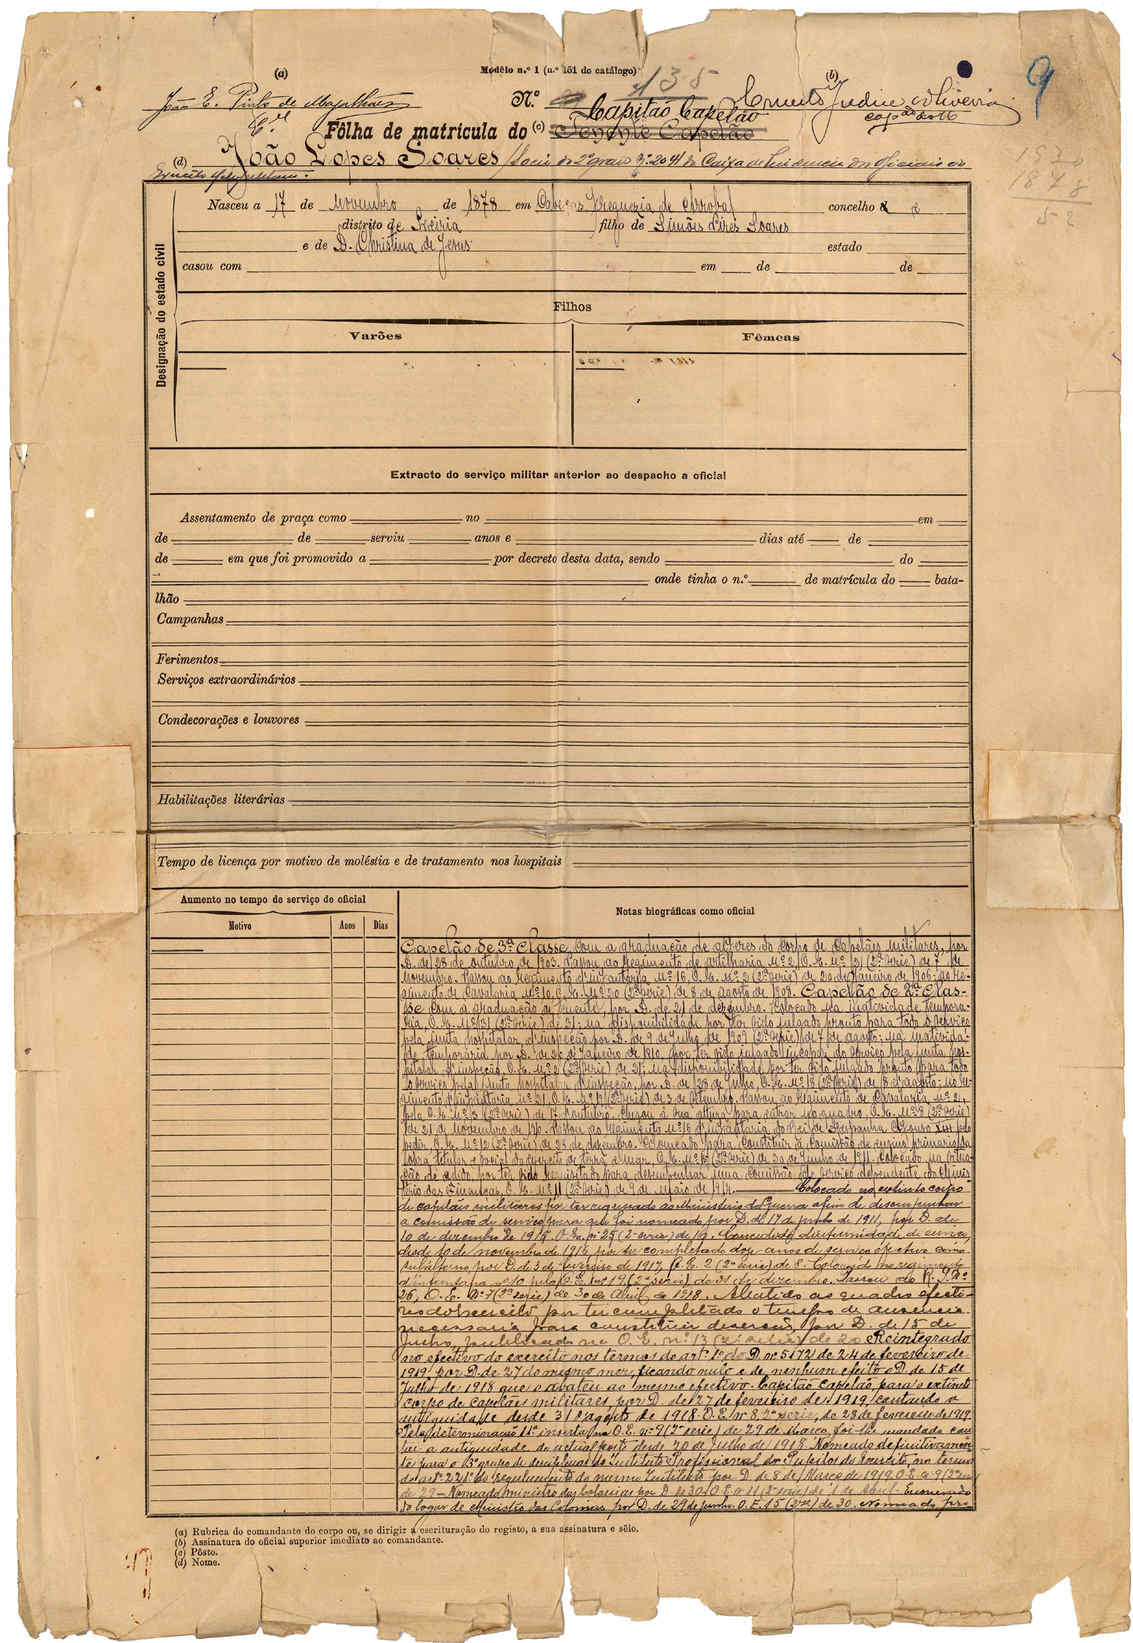 (a)
Modêlo n.º 1 (n.º 151 do catálogo)
135
(b)
9
João E. Pinto de Magalhães
N.º
Capitão Capelão
Ernesto Oliveira
Fôlha de matrícula do (c) Tenente Capelão
1930
1878
52
(d) João Lopes Soares
Socio do
Nasceu a 17 de Novembro de 1878 em Cabeças Freguezia de Arrabal concelho
distrito de Leiria filho de Simões Pires Soares
e de D. Christina de Jesus estado
casou com em de de
Designação do estado civil
Filhos
Varões Fêmeas
Extracto do serviço militar anterior ao despacho a oficial
Assentamento de praça como no em
de de serviu anos e dias até de
de em que foi promovido a por decreto desta data, sendo do
onde tinha o n.º de matrícula do bata-
lhão
Campanhas
Ferimentos
Serviços extraordinários
Condecorações e louvores
Habilitações literárias
Tempo de licença por motivo de moléstia e de tratamento nos hospitais
Aumento no tempo de serviço de oficial
Motivo Anos Dias
Notas biográficas como oficial
Capelão de 3ª classe com a graduação de alferes do corpo de capelães militares, por
D. de 28 de outubro de 1903. Passou ao Regimento de artilharia Nº 2, O. E. Nº 12 (2ª serie) de 7 de
Novembro. Passou ao Regimento d'infantaria Nº 16, O. E. Nº 2 (2ª serie) de 20 de Janeiro de 1906; ao re-
gimento de cavalaria Nº 10, O. E. Nº 20 (2ª serie) de 8 de agosto de 1908. Capelão de 2ª clas-
se com a graduação de tenente, por D. de 21 de dezembro. Colocado na inatividade tempora-
ria, O. E. Nº 31 (2ª serie) de 31; na disponibilidade por ter sido julgado pronto para todo o serviço
pela junta hospitalar d'inspeção por D. de 9 de Julho de 1909 (2ª serie) de 7 de agosto; na inatividade
temporaria por D. de 20 de Janeiro de 1910, por ter sido julgado incapaz do serviço pela junta hos-
pitalar d'inspeção, O. E. Nº 2 (2ª serie) de 31; na disponibilidade por ter sido julgado pronto para todo
o serviço pela junta hospitalar d'inspeção, por D. de 28 de Julho, O. E. Nº 18 (2ª serie) de 18 d'agosto; no re-
gimento d'infantaria Nº 21, O. E. (2ª serie) de 3 de Setembro. Passou ao Regimento de Cavalaria Nº 2,
pela O. E. Nº 3 (2ª serie) de 1º d'outubro. Chegou á sua altura para entrar no quadro, O. E. Nº 8 (2ª serie)
de 21 de novembro de 1910. Passou ao Regimento Nº 16 d'infantaria do Rei de Espanha Afonso XIII pelo
pedir, O. E. Nº 12 (2ª serie) de 23 de dezembro. Nomeado para constituir a comissão de ensino primario
do exercito de terra e mar, O. E. Nº 15 (2ª serie) de 30 de Junho de 1911. Colocado na situa-
ção de adido, por ter sido requisitado para desempenhar uma comissão de serviço dependente do Minis-
terio das Finanças, O. E. Nº 11 (2ª serie) de 9 de Maio de 1914. Colocado no extinto corpo
de capelães militares por ter regressado ao Ministerio da Guerra afim de desempenhar
a comissão de serviço para que foi nomeado por D. de 17 de junho de 1911, por D. de
10 de dezembro de 1915, O. E. nº 25 (2ª serie) de 18.
desde 10 de novembro de 1916 por ter completado doze anos de serviço efectivo como
subalterno, por D. de 3 de fevereiro de 1917, O. E. 2 (2ª serie) de 8. Colocado no regimento
d'infantaria nº 10 pela O. E. nº 19 (2ª serie) de 31 de dezembro. Passou ao R. I. Nº
26, O. E. Nº 7 (2ª serie) de 30 de Abril de 1918. Abatido ao quadro efecti-
vo do exercito, por ter completado o tempo de ausencia
necessaria para constituir deserção, por D. de 15 de
Julho, publicado na O. E. nº 13 (2ª serie) de 20. Reintegrado
no efectivo do exercito nos termos do artº 1º do D. nº 5172 de 24 de fevereiro de
1919 por D. de 27 do mesmo mez, ficando nulo e de nenhum efeito o D. de 15 de
Julho de 1918 que o abateu ao mesmo efectivo. Capitão capelão, para o extinto
corpo de capelães militares, por D. de 27 de fevereiro de 1919, contando a
antiguidade desde 31 d'agosto de 1918. O. E. nº 8, 2ª serie, de 28 de fevereiro de 1919.
Pela determinação 11ª inserta na O. E. nº 9 (2ª serie) de 29 de Março, foi-lhe mandado con-
tar a antiguidade do actual posto desde 20 de Julho de 1918. Nomeado definitivamen-
te para o 3º grupo de disciplinas do Instituto Profissional dos Pupilos do Exercito, nos termos
do artº 221º do regulamento do mesmo Instituto por D. de 8 de Março de 1919, O. E. nº 9 (2ª serie)
de 29 - Nomeado ministro das colonias por D. de 30, O. E. nº 11 (2ª serie) de 1 de Abril. Exonerado
do logar de Ministro das Colonias, por D. de 29 de junho, O. E. 15 (2ª s.) de 30. Nomeado pro
(a) Rubrica do comandante do corpo ou, se dirigir a escrituração do registo, a sua assinatura e sêlo.
(b) Assinatura do oficial superior imediato ao comandante.
(c) Pôsto.
(d) Nome.